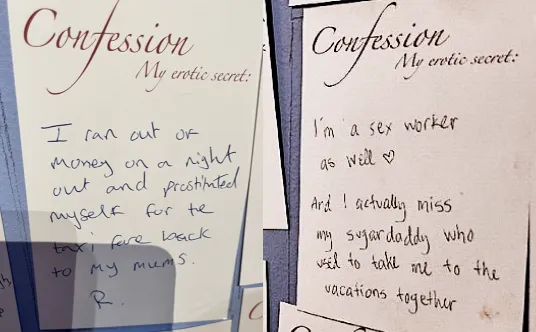 Confession
My erotic secret:
I ran out of
money on a night
out and prostituted
myself for te
taxi fare back
to my mums.
R.
Confession
My erotic secret:
I'm a sex worker
as well ♡
And I actually miss
my sugardaddy who
used to take me to the
vacations together